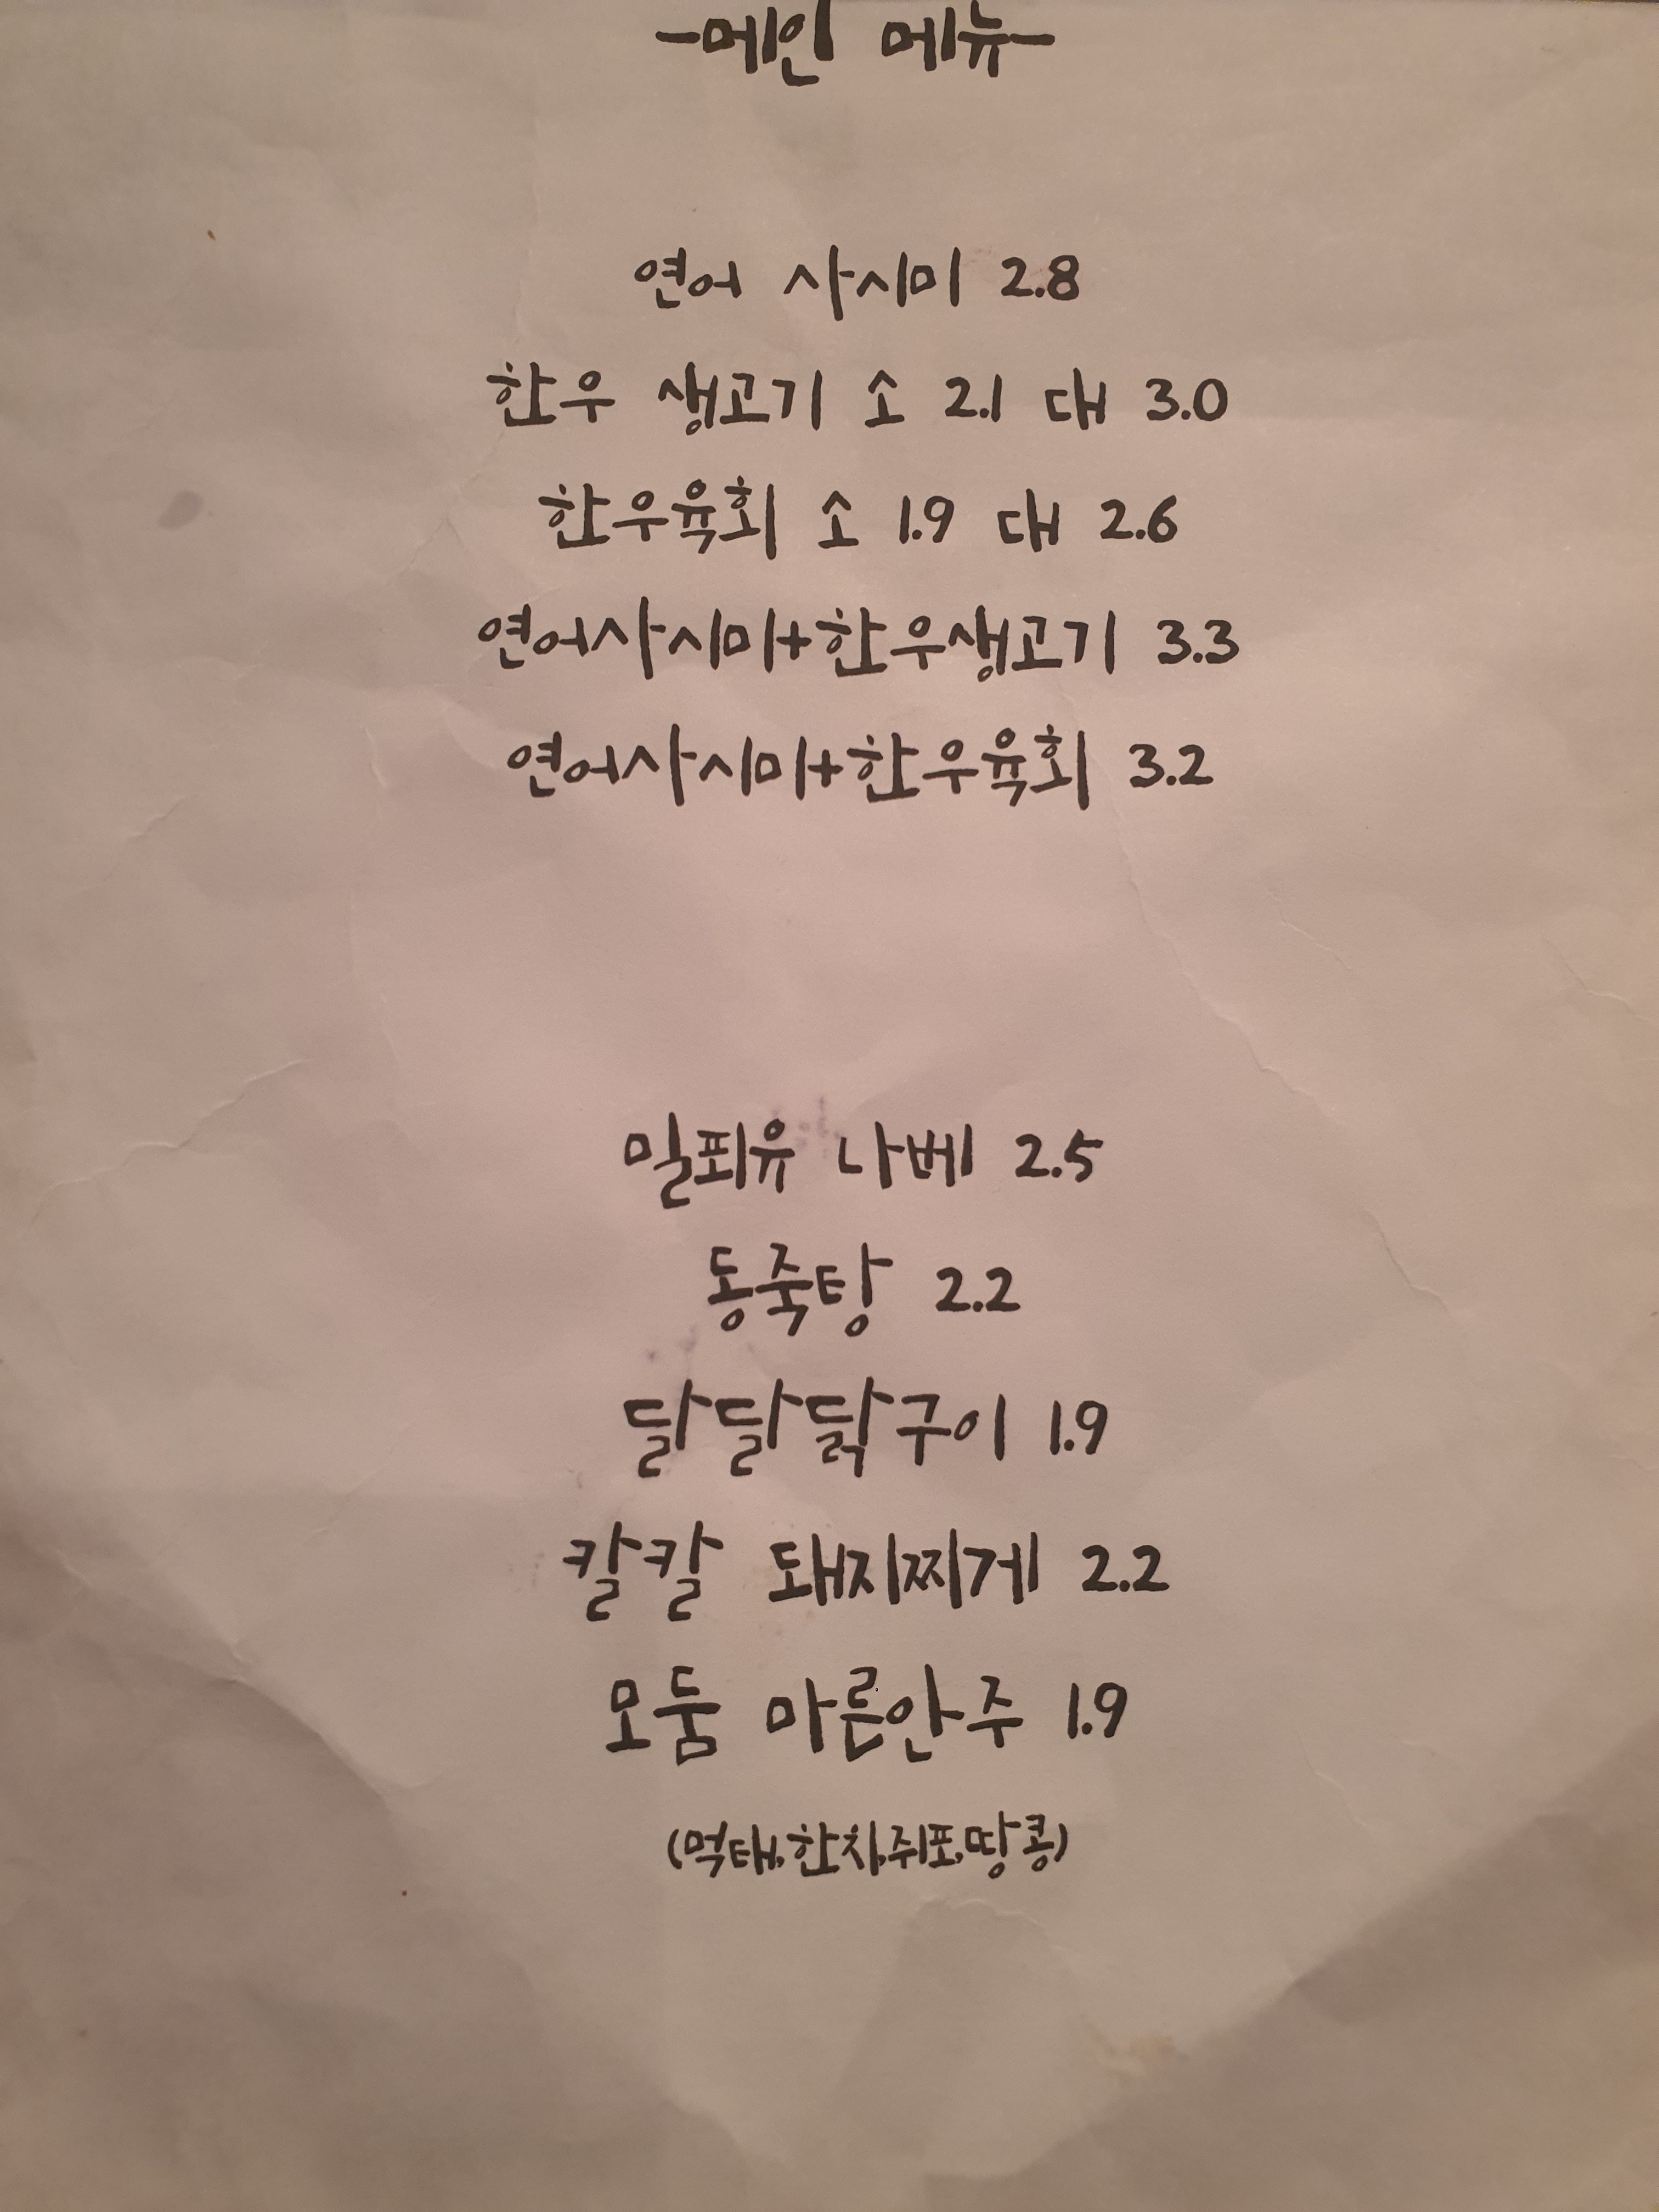 -메인 메뉴-
연어 사시미 2.8
한우 생고기 소 2.1 대 3.0
한우육회 소 1.9 대 2.6
연어사시미+한우생고기 3.3
연어사시미+한우육회 3.2
밀푀유 나베 2.5
동죽탕 2.2
달달닭구이 1.9
칼칼 돼지찌게 2.2
모둠 마른안주 1.9
(먹태,한치,쥐포,땅콩)